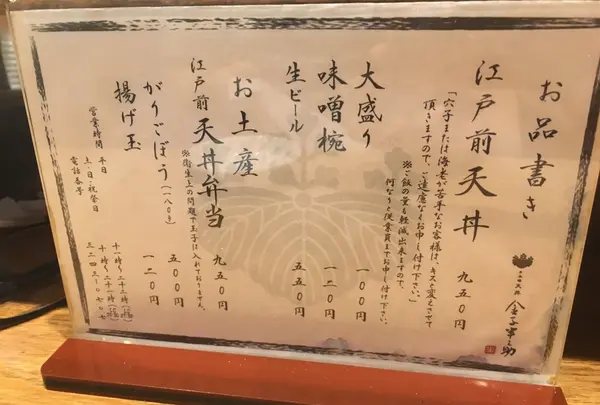 お品書き
江戸前天丼 九五〇円
「穴子または海老が苦手なお客様は、キスと変えさせて
頂きますので、ご遠慮なくお申し付け下さい。」
※ご飯の量も軽減出来ますので、
何なりと従業員までお申し付け下さい。
大盛り 一〇〇円
味噌椀 一二〇円
生ビール 五五〇円
お土産
江戸前天丼弁当 九五〇円
※衛生上の問題で玉子は入れておりません。
がりごぼう(一八〇g) 五〇〇円
揚げ玉 一二〇円
営業時間 平日 十一時〜二十二時
土・日・祝祭日 十時〜二十一時
電話番号 三二四三-〇七〇七
金子半之助